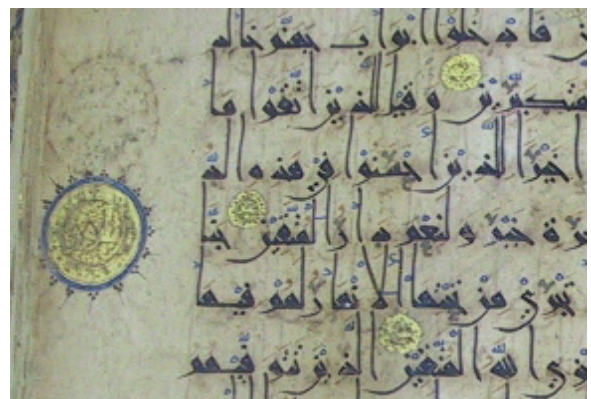 فادخلوا ابواب جهنم خالد
متكبرين وقيل للذين اتقوا ما
خيرا للذين احسنوا في هذه الد
رة خير ولنعم دار المتقين جنا
تجري من تحتها الانهار لهم فيها
زي الله المتقين الذين تتوفيهم